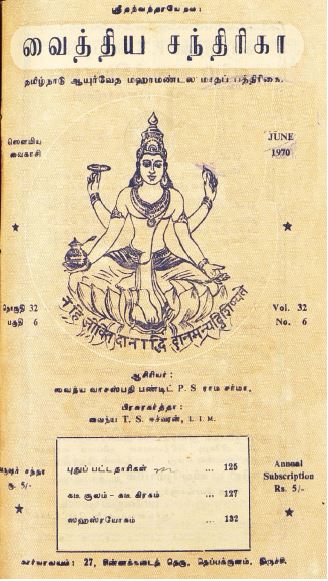 ஸ்ரீதந்வந்தரயேநம:
வைத்திய சந்திரிகா
தமிழ்நாடு ஆயுர்வேத மஹாமண்டல மாதப் பத்திரிகை.
ஸௌமிய
வைகாசி
JUNE
1970
தொகுதி 32
பகுதி 6
Vol. 32
No. 6
न हि जीवितदानाद्धि दानमन्यद्विशिष्यते
ஆசிரியர்:
வைத்ய வாசஸ்பதி பண்டிட் P. S ராம சர்மா.
பிரசுரகர்த்தா:
வைத்ய T. S. ஈச்வரன், L. I. M.
சந்தா
ரூ. 5/-
புதுப் பட்டதாரிகள் ... 125
கூட சூலம் - கூட கிரகம் ... 127
ஸஹஸ்ரயோகம் ... 132
Annual
Subscription
Rs. 5/-
கார்யாலயம்: 27, சின்னக்கடைத் தெரு, தெப்பக்குளம், திருச்சி.